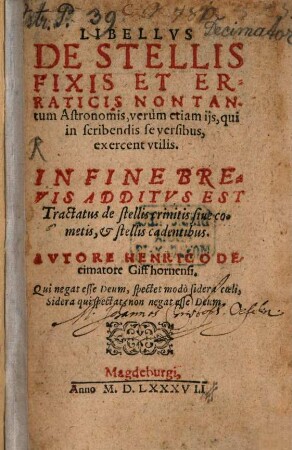 39
Decimator
LIBELLVS
DE STELLIS
FIXIS ET ER-
RATICIS NON TAN-
tum Astronomis, verùm etiam ijs, qui
in scribendis se versibus,
exercent vtilis.
R
IN FINE BRE-
VIS ADDITVS EST
Tractatus de stellis crinitis siue co-
metis, & stellis cadentibus.
AVTORE HENRICO DE-
cimatore Giffhornensi.
Qui negat esse Deum, spectet modò sidera cœli,
Sidera qui spectat, non negat esse Deum.
Magdeburgi,
Anno M. D. LXXXVII